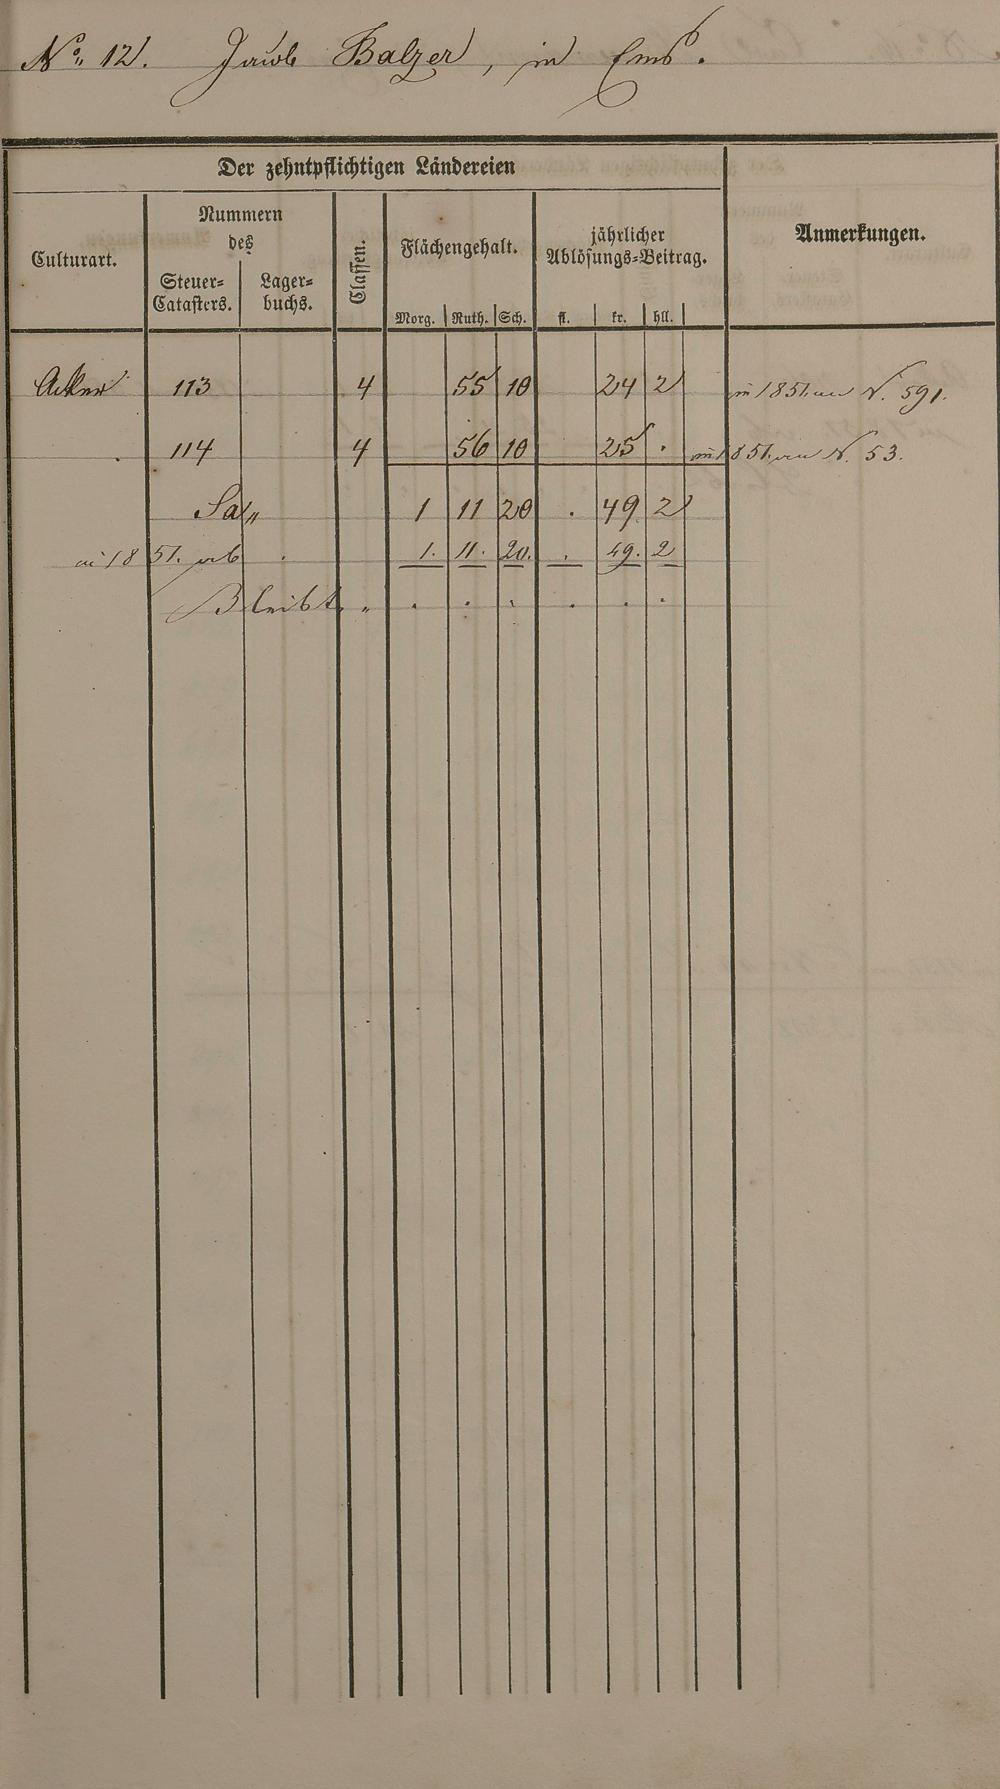 No. 12. Jacob Balzer, in Ems.
Der zehntpflichtigen Ländereien
Culturart.
Nummern
des
Steuer-
Catasters.
Lager-
buchs.
Classen.
Flächengehalt.
Morg. Ruth. Sch.
jährlicher
Ablösungs-Beitrag.
fl. kr. hll.
Anmerkungen.
Acker 113 4 55 10 24 2 in 1851 an N. 591.
. 114 4 56 10 25 . in 1851 an N. 53.
Sa„ 1 11 20 . 49 2
in 1851. ab . 1. 11. 20. . 49. 2
Bleibt „ . . . . . .